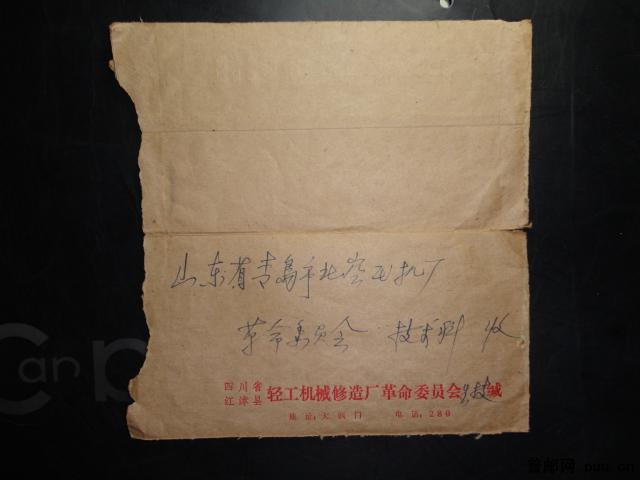 山东省青岛市北空压机厂
革命委员会 技术科 收
四川省
江津县 轻工机械修造厂革命委员会 缄
地址:大西门 电话:280
首邮网 puu.cn